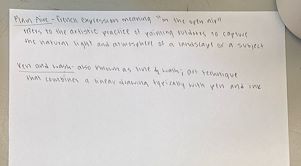 Plain Aire - French expression meaning "in the open air"
refers to the artistic practice of painting outdoors to capture
the natural light and atmosphere of a landscape or a subject
Pen and wash - also known as line & wash, art technique
that combines a linear drawing typically with pen and ink